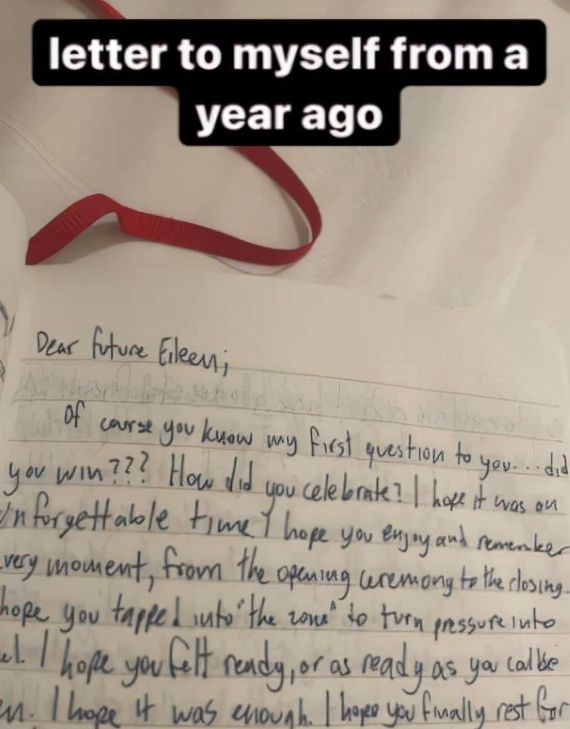 letter to myself from a
year ago
Dear future Eileen;
Of course you know my first question to you... did
you win??? How did you celebrate? I hope it was an
unforgettable time I hope you enjoy and remember
very moment, from the opening ceremony to the closing.
hope you tapped into "the zone" to turn pressure into
el. I hope you felt ready, or as ready as you could be
en. I hope it was enough. I hope you finally rest for